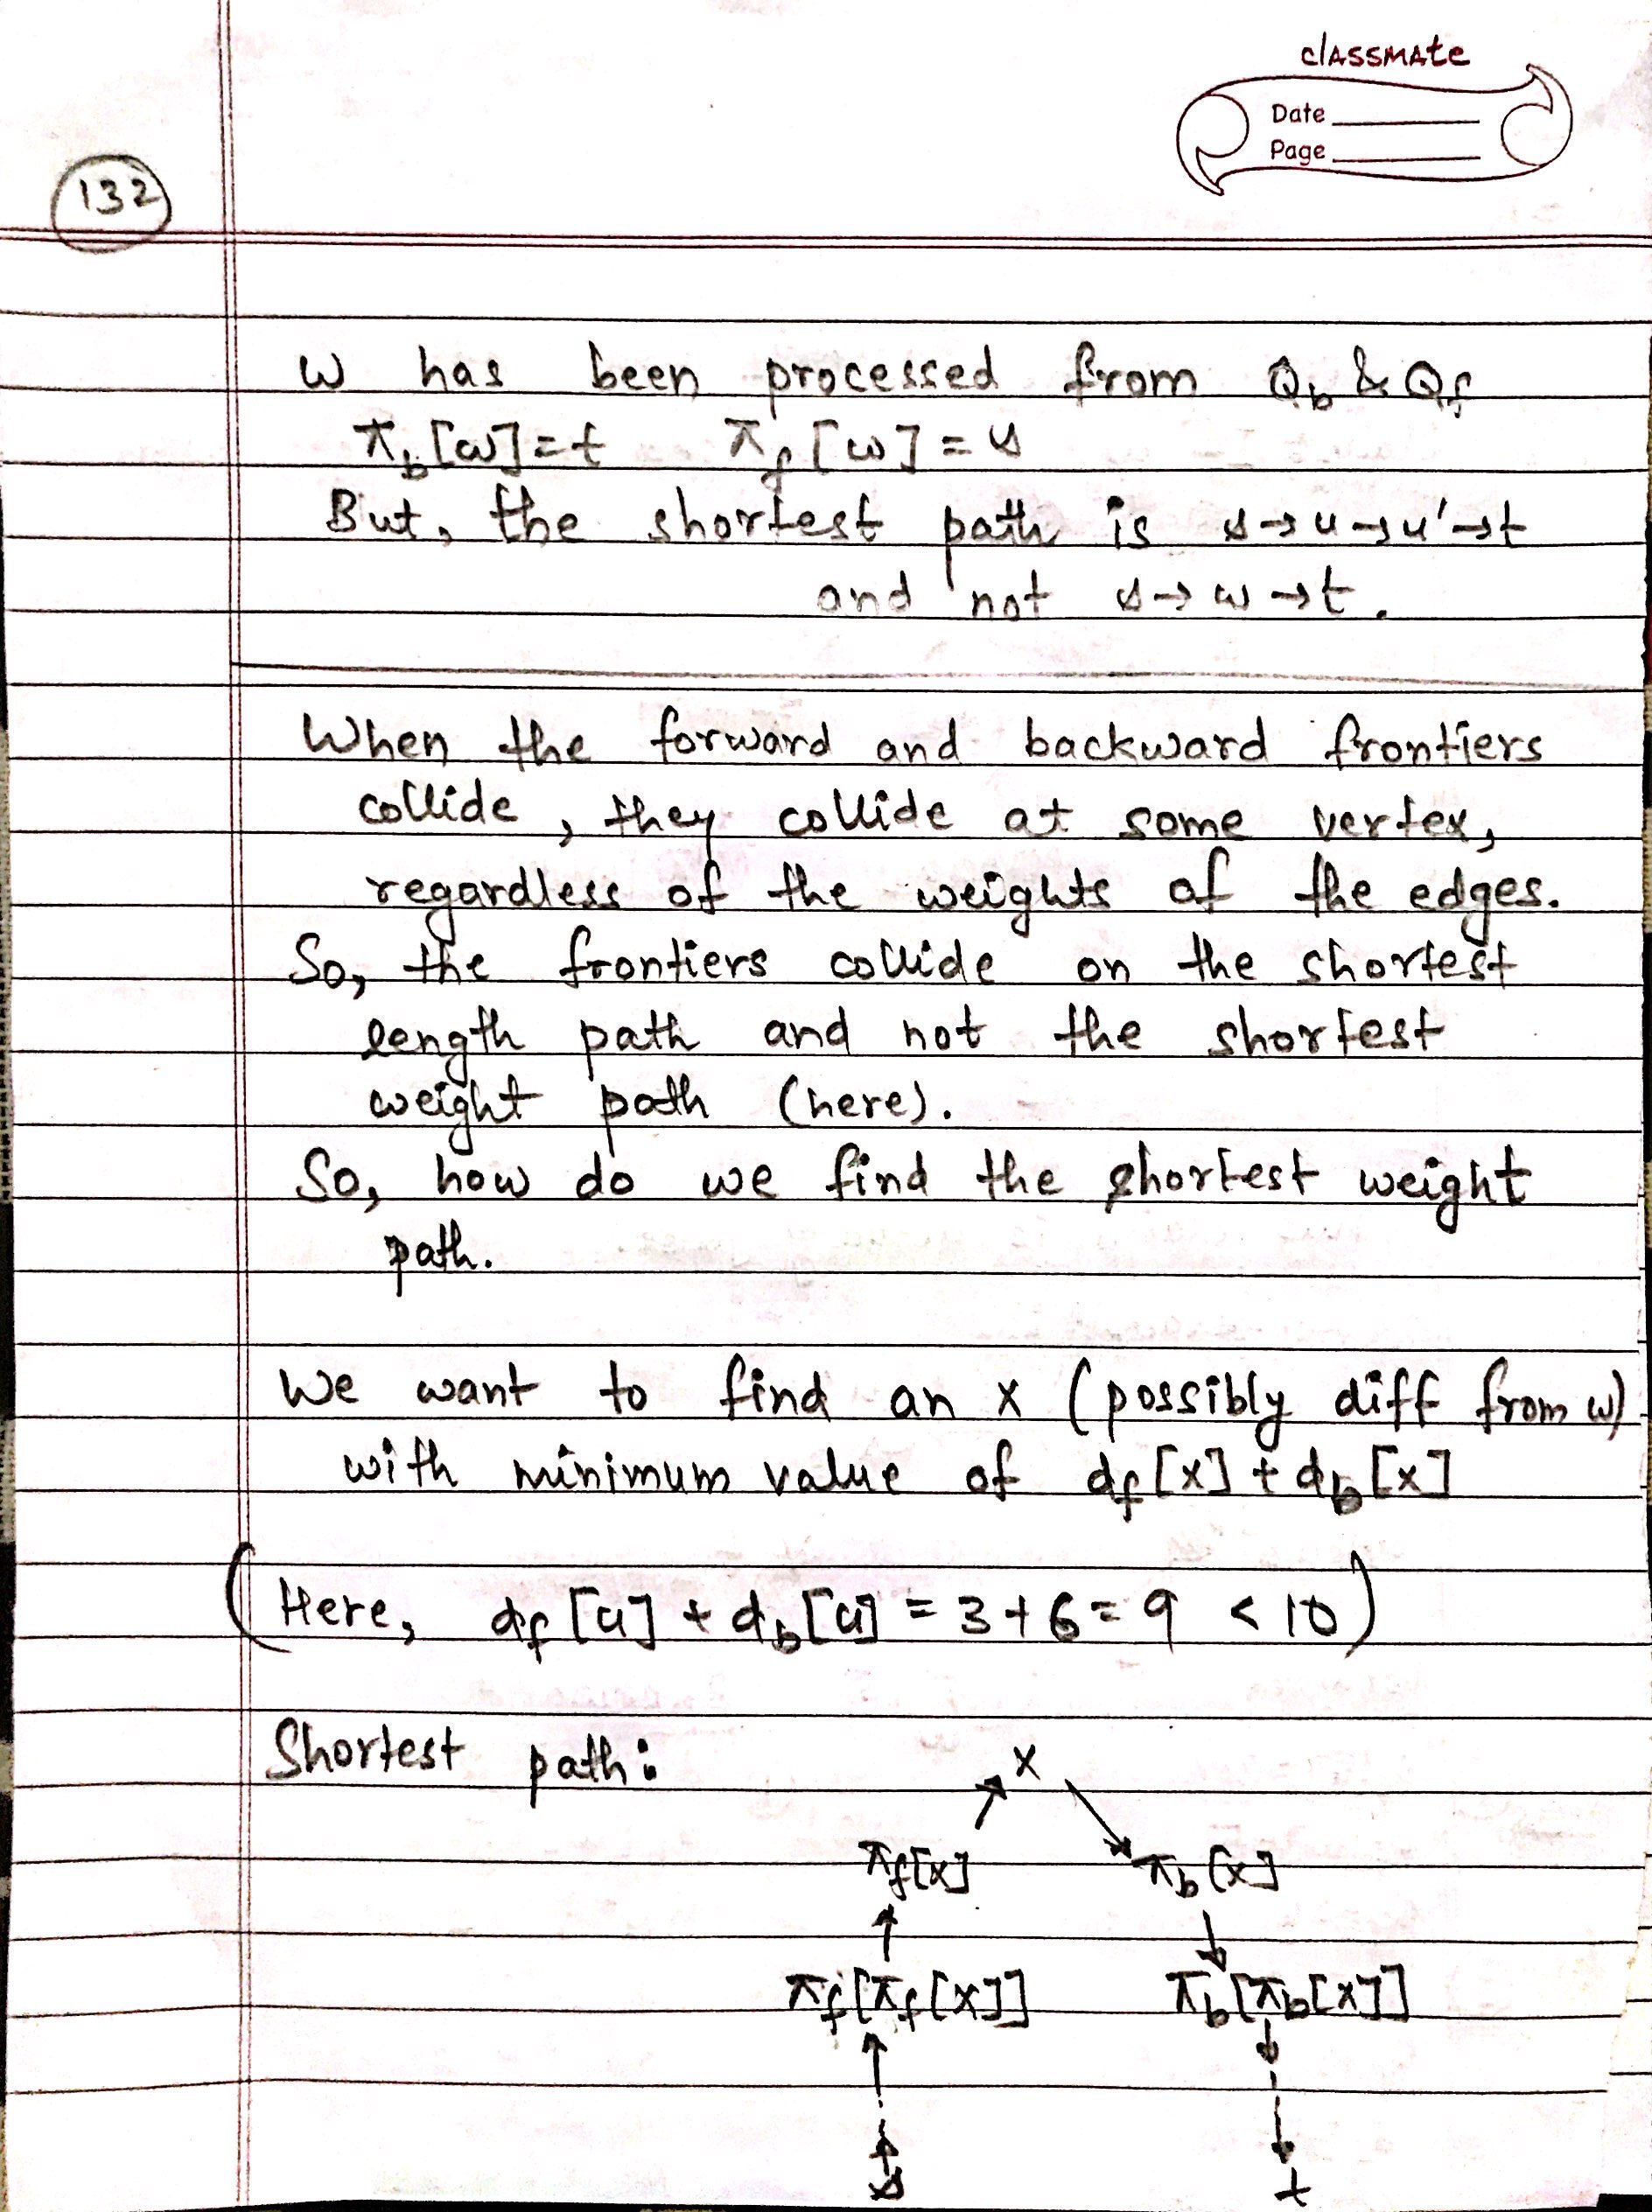 classmate
Date
Page
132
w has been processed from Qb & Qf
πb[w]=t πf[w]=s
But, the shortest path is s→u→u'→t
and not s→w→t.
When the forward and backward frontiers
collide, they collide at some vertex,
regardless of the weights of the edges.
So, the frontiers collide on the shortest
length path and not the shortest
weight path (here).
So, how do we find the shortest weight
path.
We want to find an x (possibly diff from w)
with minimum value of df[x] + db[x]
(Here, df[u] + db[u] = 3+6=9 < 10)
Shortest path:
x
πf[x] πb[x]
πf[πf[x]] πb[πb[x]]
s t